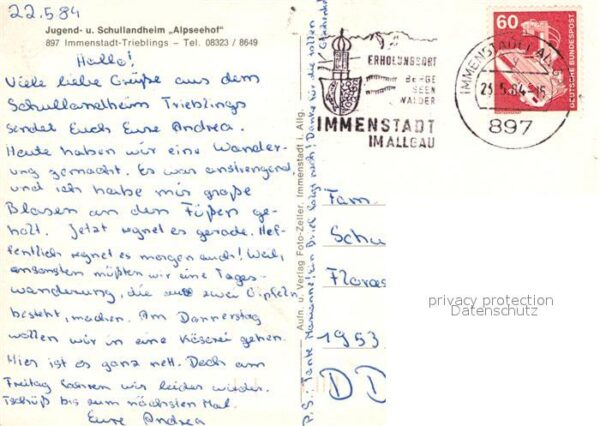 22.5.84
Jugend- u. Schullandheim „Alpseehof"
897 Immenstadt-Trieblings – Tel. 08323 / 8649
Hallo!
Viele liebe Grüße aus dem
Schullandheim Trieblings
sendet Euch Eure Andrea.
Heute haben wir eine Wander-
ung gemacht. Es war anstrengend,
und ich habe mir große
Blasen an den Füßen ge-
holt. Jetzt regnet es gerade. Hof-
fentlich regnet es morgen auch! Weil,
ansonsten müßten wir eine Tages-
wanderung, die aus zwei Gipfeln
besteht, machen. Am Donnerstag
wollen wir in eine Käserei gehen.
Hier ist es ganz nett. Doch am
Freitag fahren wir leider wieder.
Tschüß bis zum nächsten Mal.
Eure Andrea
P.S.: Tante Marianne! Ein Brief folgt noch! Danke für die tollen
Aufn. u. Verlag Foto-Zeller, Immenstadt i. Allg.
ERHOLUNGSORT
BERGE
SEEN
WÄLDER
IMMENSTADT
IM ALLGÄU
IMMENSTADT, ALLGÄU
23.5.84-15
897
60
DEUTSCHE BUNDESPOST
Fam.
Schu
Floras
1953
DD
privacy protection
Datenschutz